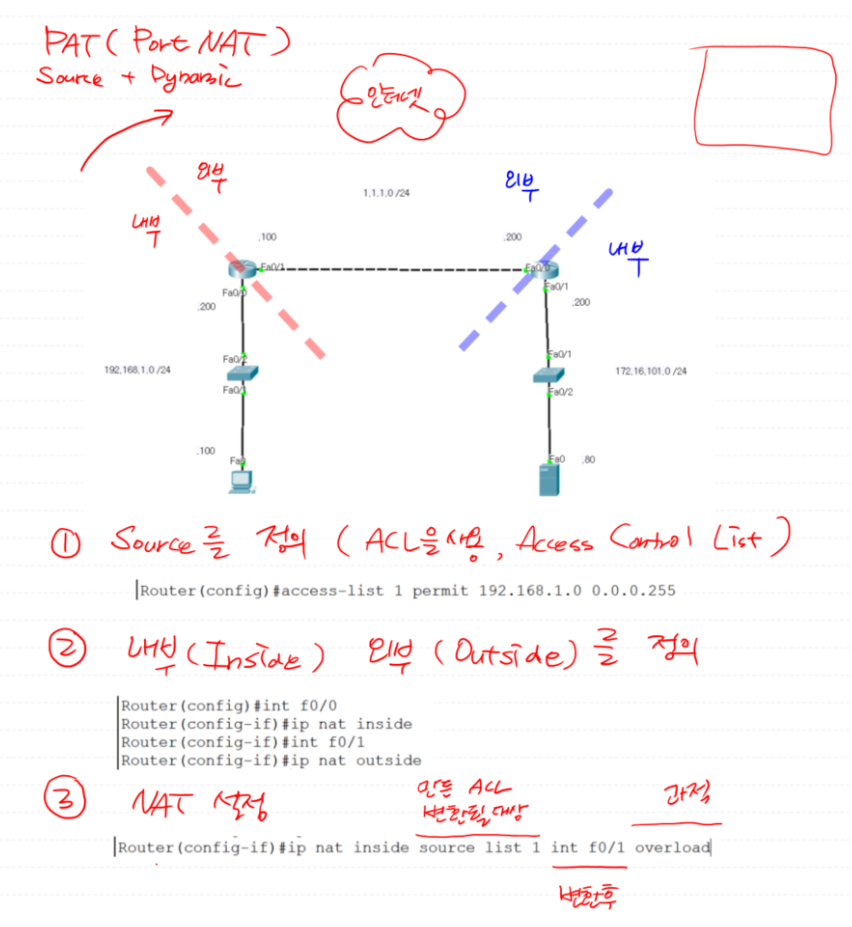 PAT ( Port NAT )
Source + Dynamic
인터넷
외부
내부
외부
내부
1.1.1.0 /24
.100
.200
Fa0/1
Fa0/0
Fa0/0
Fa0/1
.200
.200
192.168.1.0 /24
Fa0/2
Fa0/1
Fa0/1
Fa0/2
172.16.101.0 /24
.100
Fa0
Fa0
.80
① Source를 정의 ( ACL을 사용, Access Control List )
Router(config)#access-list 1 permit 192.168.1.0 0.0.0.255
② 내부 (Inside) 외부 (Outside) 를 정의
Router(config)#int f0/0
Router(config-if)#ip nat inside
Router(config-if)#int f0/1
Router(config-if)#ip nat outside
③ NAT 설정
만든 ACL
변환될 대상
과적
Router(config-if)#ip nat inside source list 1 int f0/1 overload
변환후